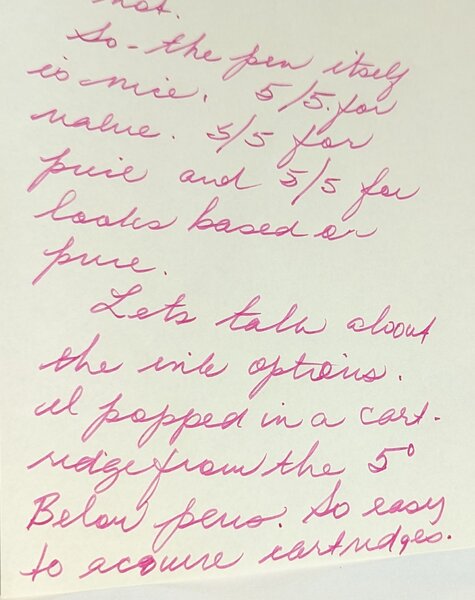 not.
So - the pen itself
is nice. 5/5 for
value. 5/5 for
price and 5/5 for
looks based on
price.
Lets talk about
the ink options.
I popped in a cart-
ridge from the 5°
Below pens. So easy
to acquire cartridges.